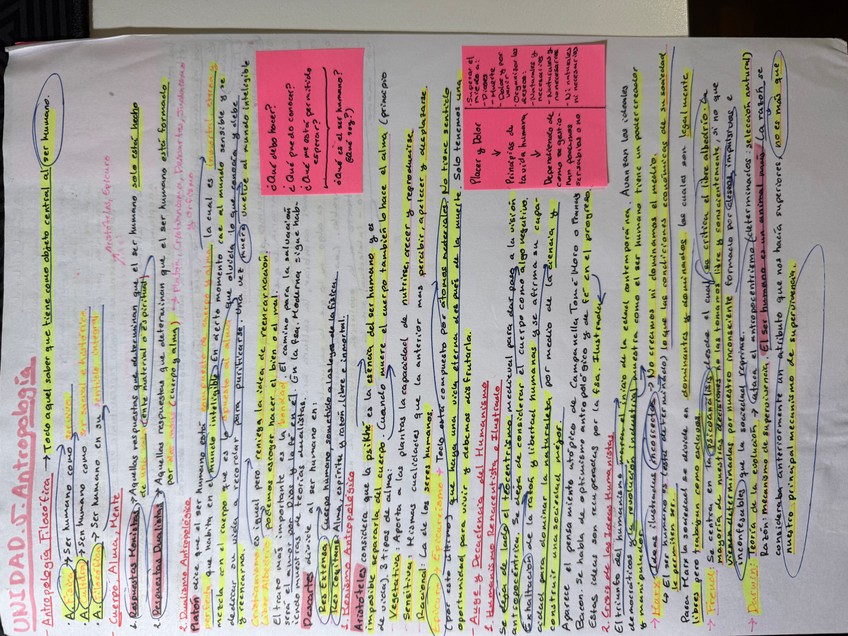 UNIDAD 5- Antropología
- Antropología Filosófica → Todo aquel saber que tiene como objeto central al ser humano.
→ Ser humano como
→ Ser humano como
→ Ser humano en su
- Cuerpo, Alma, Mente
Aristóteles, Epicuro
1. Respuestas Monistas → Aquellas respuestas que determinan que el ser humano solo está hecho
(ente material o espiritual)
2. Respuestas Dualistas → Aquellas respuestas que determinan que el ser humano está formado
por (cuerpo y alma) → Platón, Cristianismo, Descartes,
y orfismo
2. Dualismo Antropológico
Platón → Cree que el ser humano está compuesto la cual es inmortal, eterna y
perfecta que habita en el mundo inteligible. En cierto momento cae al mundo sensible y se
mezcla con el cuerpo que es lo opuesto al alma que olvida lo que conocía y debe
dedicar su vida a recordar para purificarse. Una vez muera vuelve al mundo inteligible
y reencarna.
Cristianismo → es igual pero reniega la idea de reencarnación.
podemos escoger hacer el bien o el mal.
El trazo más importante es la El camino para la salvación
será el amor por dios y la fe en él. En la fªa. Moderna sigue hab-
iendo muestras de teorías dualistas.
Descartes divide al ser humano en:
Res Extensa: Cuerpo humano, sometido a las leyes de la física.
Res Cogitans: Alma, espíritu y razón, libre e inmortal.
¿Qué debo hacer?
¿Qué puedo conocer?
¿Qué me está permitido
esperar?
¿Qué es el ser humano?
(¿Qué soy?)
1. Monismo Antropológico
Aristóteles considera que la psikhé es la esencia del ser humano y es
imposible separarla del cuerpo. Cuando muere el cuerpo también lo hace el alma (principio
de vida). 3 tipos de alma:
- Vegetativa: Aporta a las plantas la capacidad de nutrirse, crecer y reproducirse
- Sensitiva: Mismas cualidades que la anterior mas percibir, apetecer y desplazarse.
- Racional: La de los seres humanos.
Epicuro → Epicureismo → Todo está compuesto por átomos materiales. No tiene sentido
(por esto último) que haya una vida eterna después de la muerte. Solo tenemos una
oportunidad para vivir y debemos disfrutarla.
- Auge y Decadencia del Humanismo
1. Humanismo Renacentista e Ilustrado
Se abandonado el teocentrismo medieval para dar paso a la visión
antropocéntrica. Se deja de considerar el cuerpo como algo negativo.
Exhaltación de la razón y libertad humanas y se afirma su capa-
cidad para dominar la naturaleza por medio de la ciencia y
construir una sociedad utópica.
Aparece el pensamiento utópico de Campanella, Tomé Moro o Francis
Bacon. Se habla de optimismo antropológico y de fe en el progreso.
Estas ideas son recuperadas por la fªa. Ilustrada.
Placer y Dolor
↓
Principios de
la vida humana
↓
Dependiendo de
como se gestio-
nan podemos
ser sabios o no
- Superar el
miedo a:
- Dioses
- Muerte
- Dolor y por
venir
- Organizar los
deseos:
- Naturales y
necesarios
- Naturales y
no necesarios
- Ni naturales
ni necesarios
2. Crisis de las Ideas Humanistas
El triunfo del humanismo el inicio de la edad contemporánea. Avanzan los ideales
democráticos y la revolución industrial muestra como el ser humano tiene un poder creador
y manipulador.
→ Marx: Ideas ilustradas incorrectas → No creemos ni dominamos el medio.
↳ El ser humano es (está determinado) lo que las condiciones económicas de su sociedad
le permiten ser.
Para Marx la sociedad se divide en dominantes y dominados los cuales son legalmente
libres pero trabajan como esclavos.
→ Freud: Se centra en la psicoanálisis desde el cual se critica el libre albedrío. La
mayoría de nuestras decisiones no las tomamos libre y conscientemente, si no que
vienen determinadas por nuestro inconsciente formado por deseos impulsivos e
inconfesables que la sociedad reprime.
→ Darwin: Teoría de la evolución → Ataca el antropocentrismo (determinados x selección natural)
Razón: mecanismo de supervivencia. El ser humano es un animal más. La razón se
consideraba anteriormente un atributo que nos hacía superiores, no es más que
nuestro principal mecanismo de supervivencia.